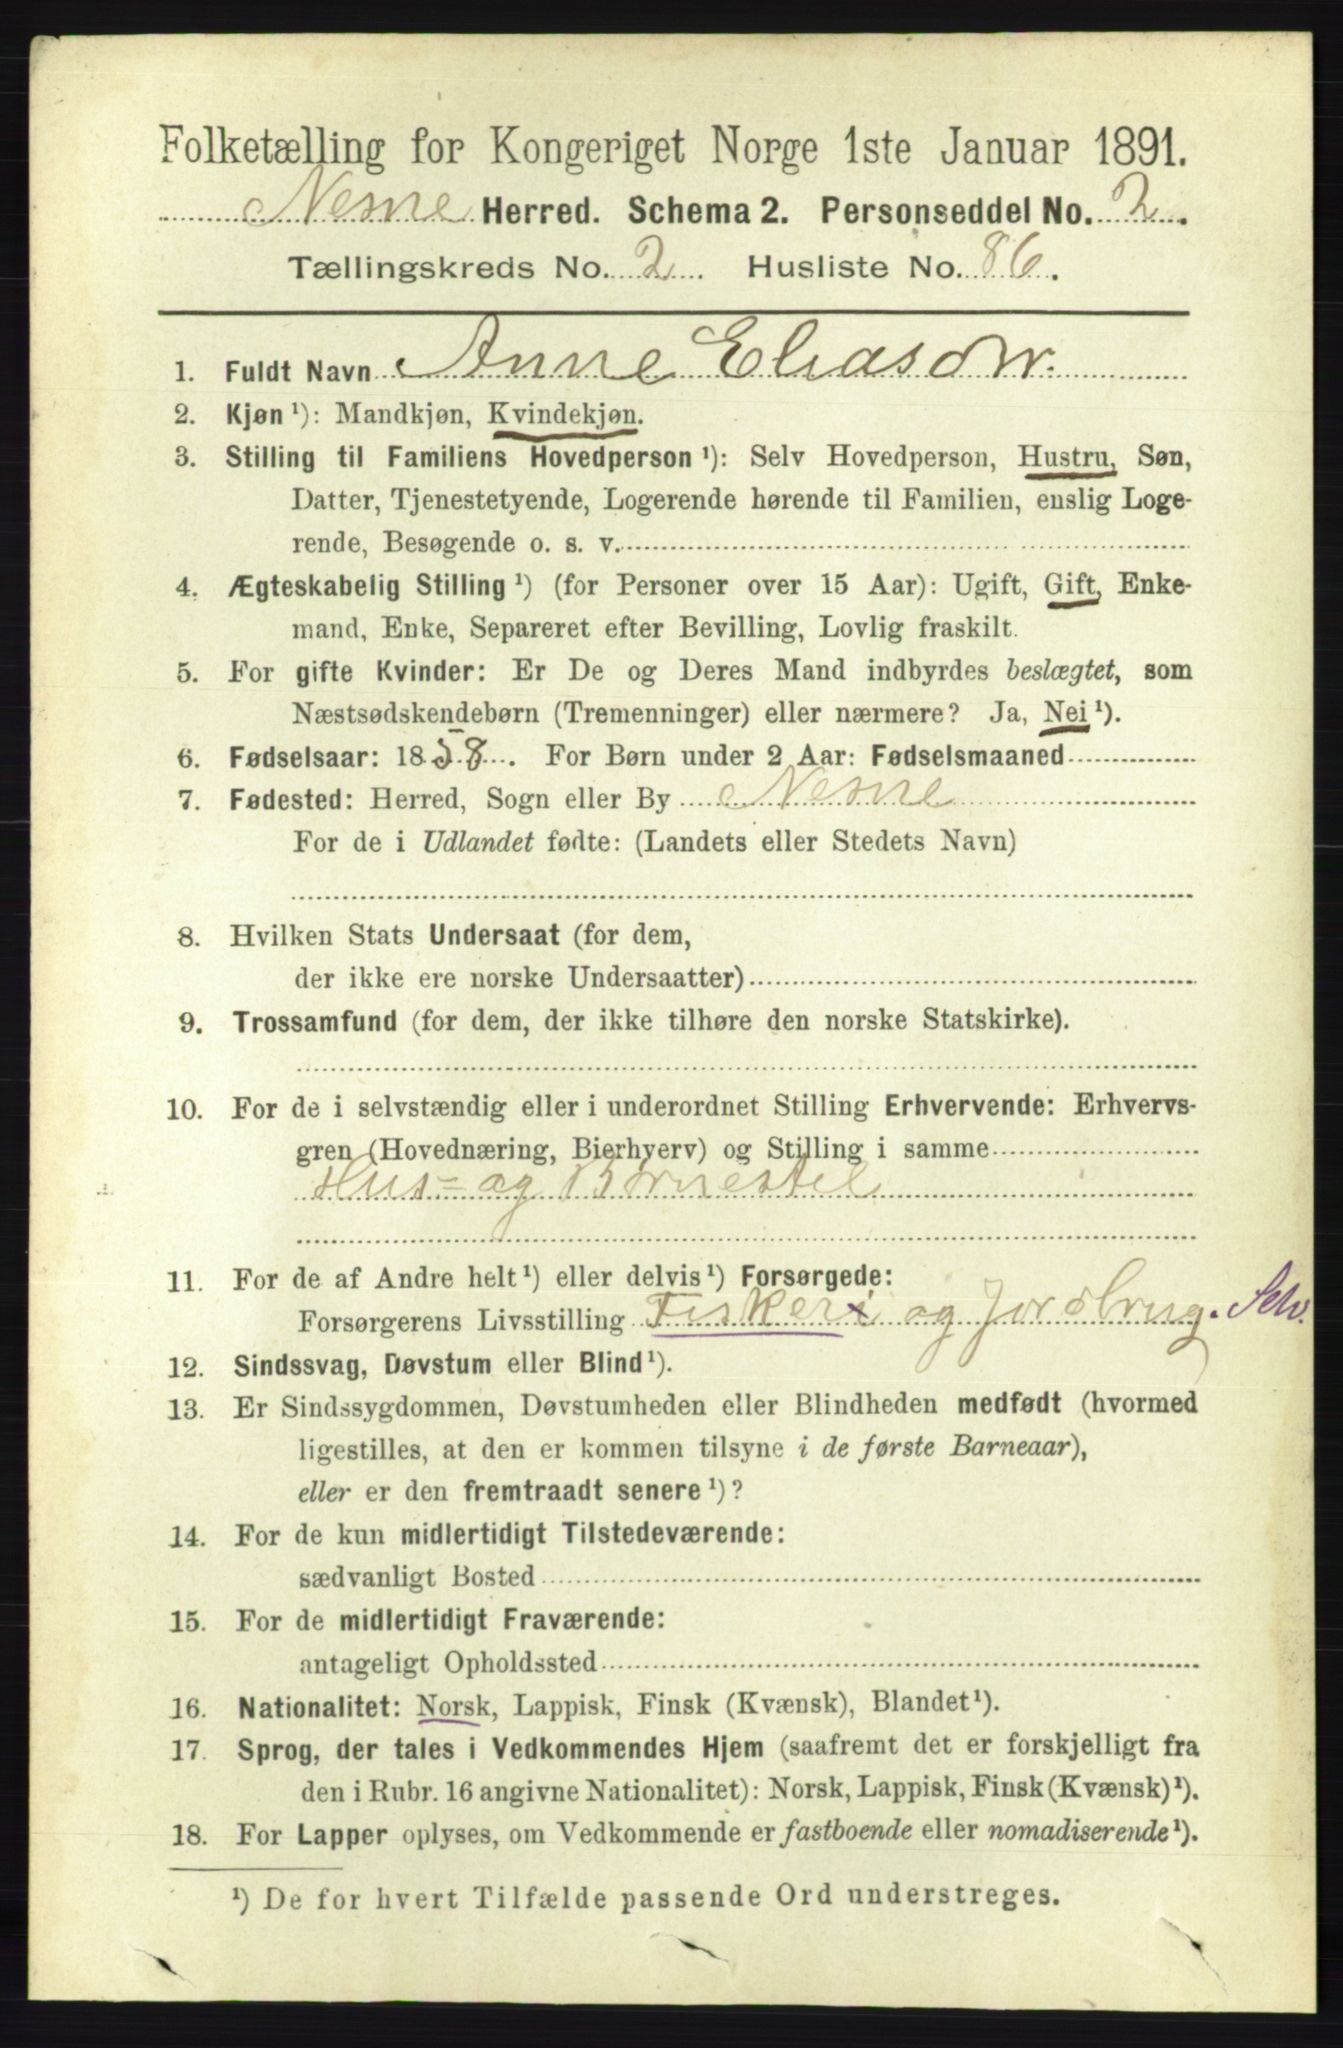 Folketælling for Kongeriget Norge 1ste Januar 1891.
Nesne Herred. Schema 2. Personseddel No. 2.
Tællingskreds No. 2 Husliste No. 86.
1. Fuldt Navn Anne Eliasdtr.
2. Kjøn ¹): Mandkjøn, Kvindekjøn.
3. Stilling til Familiens Hovedperson ¹): Selv Hovedperson, Hustru, Søn,
Datter, Tjenestetyende, Logerende hørende til Familien, enslig Loge-
rende, Besøgende o. s. v.
4. Ægteskabelig Stilling ¹) (for Personer over 15 Aar): Ugift, Gift, Enke-
mand, Enke, Separeret efter Bevilling, Lovlig fraskilt.
5. For gifte Kvinder: Er De og Deres Mand indbyrdes beslægtet, som
Næstsødskendebørn (Tremenninger) eller nærmere? Ja, Nei ¹).
6. Fødselsaar: 1858. For Børn under 2 Aar: Fødselsmaaned
7. Fødested: Herred, Sogn eller By Nesne
For de i Udlandet fødte: (Landets eller Stedets Navn)
8. Hvilken Stats Undersaat (for dem,
der ikke ere norske Undersaatter)
9. Trossamfund (for dem, der ikke tilhøre den norske Statskirke).
10. For de i selvstændig eller i underordnet Stilling Erhvervende: Erhvervs-
gren (Hovednæring, Bierhverv) og Stilling i samme
Hus- og Børnestel
11. For de af Andre helt ¹) eller delvis ¹) Forsørgede:
Forsørgerens Livsstilling Fiskeri og Jordbrug. Selv.
12. Sindssvag, Døvstum eller Blind ¹).
13. Er Sindssygdommen, Døvstumheden eller Blindheden medfødt (hvormed
ligestilles, at den er kommen tilsyne i de første Barneaar),
eller er den fremtraadt senere ¹)?
14. For de kun midlertidigt Tilstedeværende:
sædvanligt Bosted
15. For de midlertidigt Fraværende:
antageligt Opholdssted
16. Nationalitet: Norsk, Lappisk, Finsk (Kvænsk), Blandet ¹).
17. Sprog, der tales i Vedkommendes Hjem (saafremt det er forskjelligt fra
den i Rubr. 16 angivne Nationalitet): Norsk, Lappisk, Finsk (Kvænsk) ¹).
18. For Lapper oplyses, om Vedkommende er fastboende eller nomadiserende ¹).
¹) De for hvert Tilfælde passende Ord understreges.